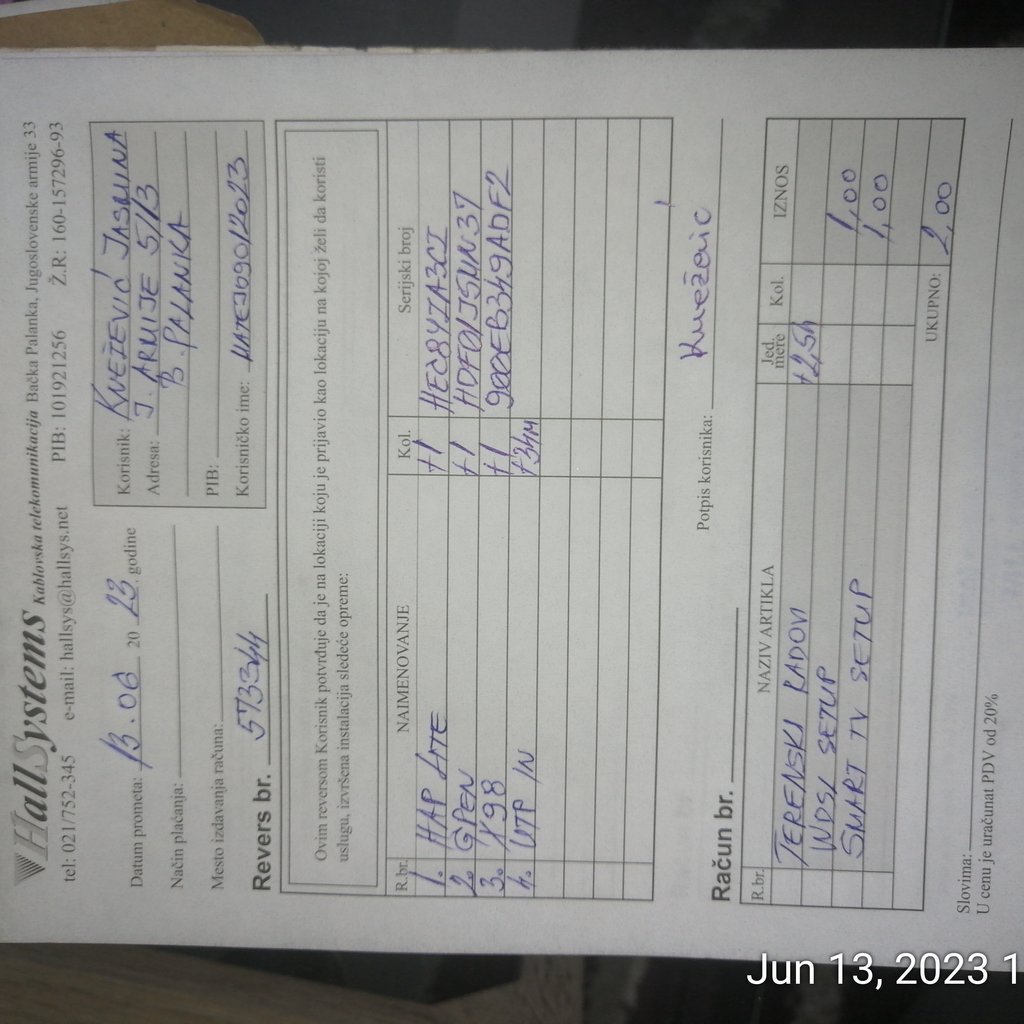 HallSystems Kablovska telekomunikacija Bačka Palanka, Jugoslovenske armije 33
tel: 021/752-345 e-mail: hallsys@hallsys.net PIB: 101921256 Ž.R: 160-157296-93
Datum prometa: 13.06 2023. godine
Način plaćanja:
Mesto izdavanja računa:
Revers br. 573344
Korisnik: KNEŽEVIĆ JASMINA
Adresa: J. ARMIJE 5/13
B. PALANKA
PIB:
Korisničko ime:
Ovim reversom Korisnik potvrđuje da je na lokaciji koju je prijavio kao lokaciju na kojoj želi da koristi
uslugu, izvršena instalacija sledeće opreme:
R.br. NAIMENOVANJE Kol. Serijski broj
1. HAP LITE +1
2. GPEN +1
3. X98 +1
4. UTP IN +34M
Potpis korisnika: Knežević
Račun br.
R.br. NAZIV ARTIKLA Jed. mere Kol. IZNOS
TERENSKI RADOVI +2,5h
WDSL SETUP 1,00
SMART TV SETUP 1,00
UKUPNO: 2,00
Slovima:
U cenu je uračunat PDV od 20%
Jun 13, 2023 1